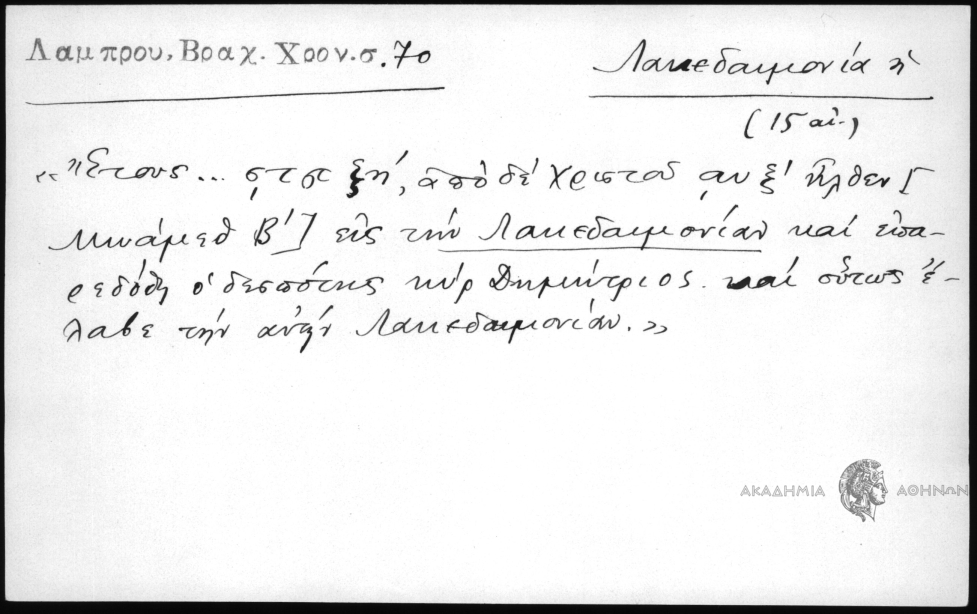 Λαμπρου, Βραχ. Χρον. σ. 70
Λακεδαιμονία ἡ
(15 αἰ.)
«"Ετους... ϛϡξη', ἀπὸ δὲ Χριστοῦ αυξ' ἦλθεν [
Μωάμεθ Β'] εἰς τὴν Λακεδαιμονίαν καὶ ἐπα-
ρεδόθη ὁ δεσπότης κὺρ Δημήτριος. καὶ οὕτως ἔ-
λαβε τὴν αὐτὴν Λακεδαιμονίαν.»
ΑΚΑΔΗΜΙΑ ΑΘΗΝΩΝ